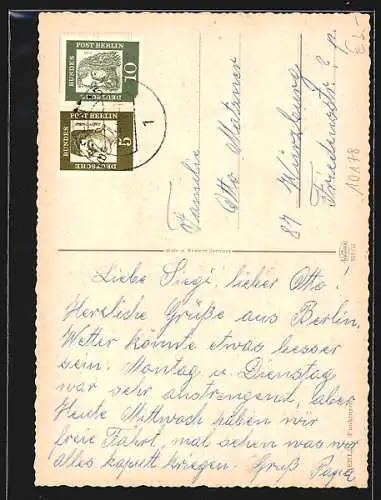 DEUTSCHE BUNDES POST BERLIN
10
DEUTSCHE BUNDES POST BERLIN
5
1
Familie
Otto
87 Würzburg
Friedenstr.
10178
Made in Western Germany
Liebe Siegi, lieber Otto!
Herzliche Grüße aus Berlin,
Wetter könnte etwas besser
sein. Montag u. Dienstag
war sehr anstrengend, aber
Heute Mittwoch haben wir
freie Fahrt, mal sehen was wir
alles kaputt kriegen. Gruß Papa